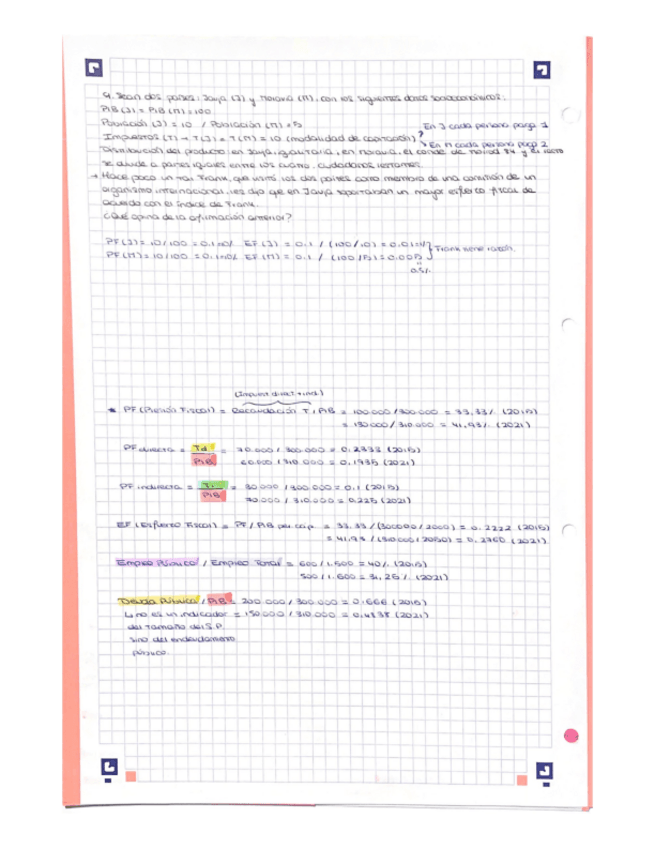 4. Sean dos países: Jauja (J) y Moravia (M), con los siguientes datos socioeconómicos:
PIB (J) = PIB (M) = 100
Población (J) = 10 / Población (M) = 5
En J cada persona paga 1
Impuestos (T) → T(J) = T(M) = 10 (modalidad de capitación)
En M cada persona paga 2
Distribución del producto: en Jauja, igualitaria, en Moravia, el conde de 84 y el resto
se divide a partes iguales entre los cuatro ciudadanos restantes.
→ Hace poco un tal Frank, que visitó los dos países como miembro de una comisión de un
organismo internacional, les dijo que en Jauja soportaban un mayor esfuerzo fiscal de
acuerdo con el índice de Frank.
¿Qué opina de la afirmación anterior?
PF (J) = 10/100 = 0.1 = 10% EF (J) = 0.1 / (100/10) = 0.01 = 1%
Frank tiene razón.
PF (M) = 10/100 = 0.1 = 10% EF (M) = 0.1 / (100/5) = 0.005
0.5%
(Impuest direct + ind.)
* PF (Presión Fiscal) = Recaudación T / PIB = 100.000/300.000 = 33,33% (2015)
= 130.000/310.000 = 41,93% (2021)
PF directa = Td / PIB = 70.000/300.000 = 0.2333 (2015)
60.000/310.000 = 0.1935 (2021)
PF indirecta = Ti / PIB = 30.000/300.000 = 0.1 (2015)
70.000/310.000 = 0.225 (2021)
EF (Esfuerzo Fiscal) = PF / PIB per cáp. = 33.33/(300000/2000) = 0.2222 (2015)
= 41.93/(310000/2050) = (2021)
Empleo Público / Empleo Total = 600/1.500 = 40% (2015)
500/1.600 = 31,25% (2021)
Deuda Pública / PIB = 200.000/300.000 = 0.666 (2015)
↳ no es un indicador = 150.000/310.000 = 0.4838 (2021)
del tamaño del S.P.
sino del endeudamiento
público.